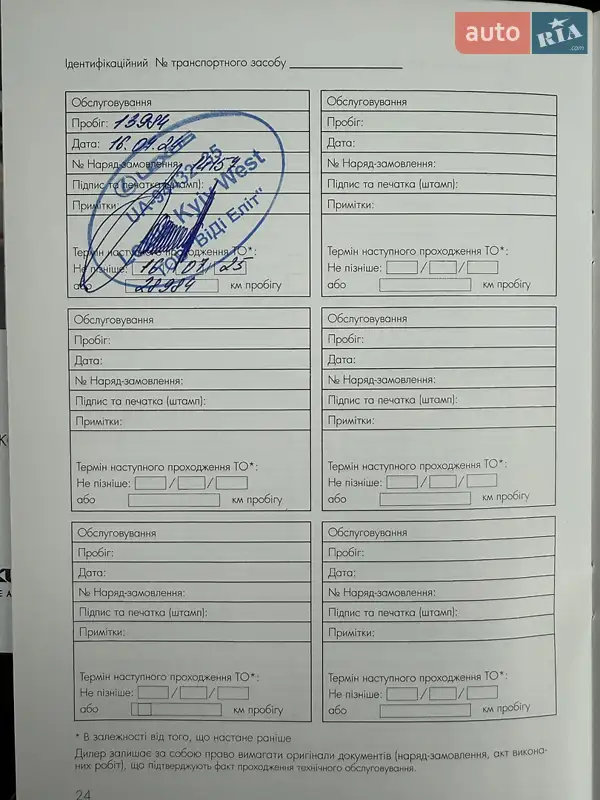 auto RIA .com
Ідентифікаційний № транспортного засобу
Обслуговування
Пробіг: 13984
Дата: 16.07.24
№ Наряд-замовлення:
Підпис та печатка (штамп):
Примітки:
UA-94132-85
Kyiv West
ТОВ "ВіДі Еліт"
Термін наступного проходження ТО*:
Не пізніше: 16/07/25
або 28984 км пробігу
Обслуговування
Пробіг:
Дата:
№ Наряд-замовлення:
Підпис та печатка (штамп):
Примітки:
Термін наступного проходження ТО*:
Не пізніше: / /
або км пробігу
Обслуговування
Пробіг:
Дата:
№ Наряд-замовлення:
Підпис та печатка (штамп):
Примітки:
Термін наступного проходження ТО*:
Не пізніше: / /
або км пробігу
Обслуговування
Пробіг:
Дата:
№ Наряд-замовлення:
Підпис та печатка (штамп):
Примітки:
Термін наступного проходження ТО*:
Не пізніше: / /
або км пробігу
Обслуговування
Пробіг:
Дата:
№ Наряд-замовлення:
Підпис та печатка (штамп):
Примітки:
Термін наступного проходження ТО*:
Не пізніше: / /
або км пробігу
Обслуговування
Пробіг:
Дата:
№ Наряд-замовлення:
Підпис та печатка (штамп):
Примітки:
Термін наступного проходження ТО*:
Не пізніше: / /
або км пробігу
* В залежності від того, що настане раніше
Дилер залишає за собою право вимагати оригінали документів (наряд-замовлення, акт викона-
них робіт), що підтверджують факт проходження технічного обслуговування.
24